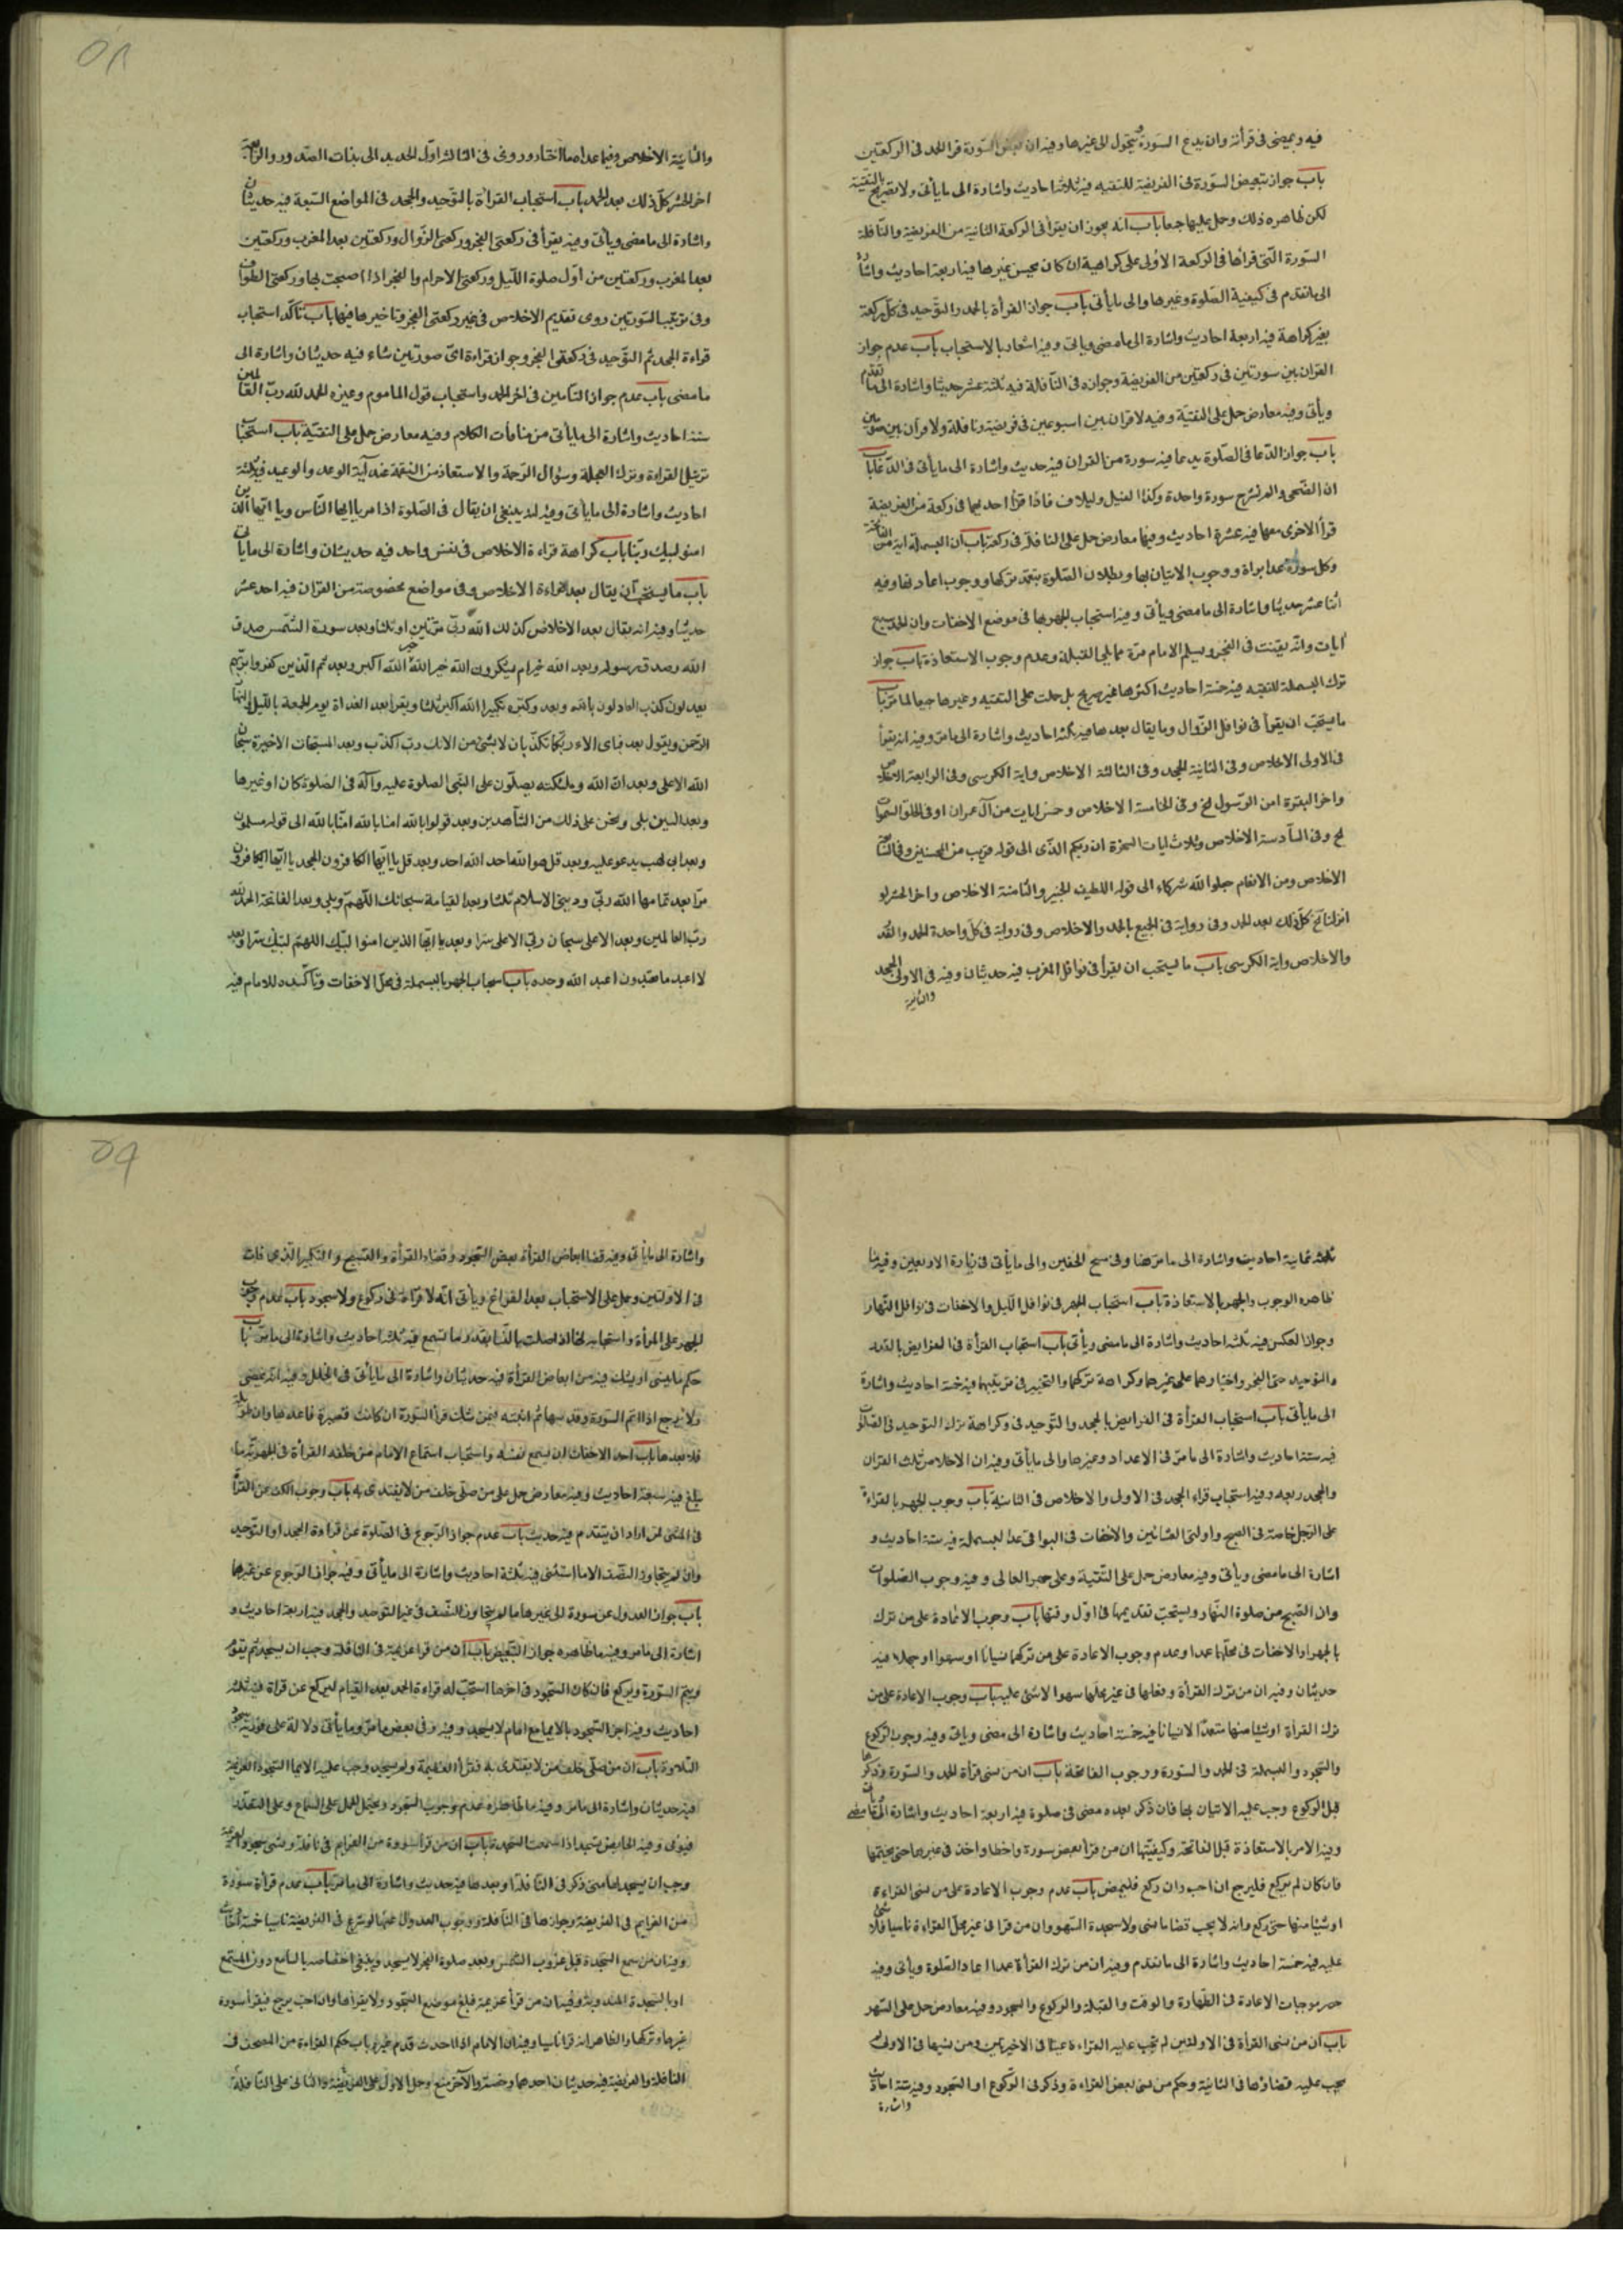 فيه ويمضى فى قرأته وان يدع السورة ويتحول الى غيرها وفيه ان بعض السورة قرا الحمد فى الركعتين
باب جواز تبعيض السورة فى الفريضة للتقيه فيه ثلاثة احاديث واشارة الى ما يأتى ولا تصريح بالتقية
لكن ظاهره ذلك وحمل عليها جمعا باب انه يجوز ان يقرأ فى الركعة الثانية من الفريضة والنافلة
السورة التى قرأها فى الركعة الأولى على كراهية ان كان يحسن غيرها فيه اربعة احاديث واشارة
الى ما تقدم فى كيفية الصلوة وغيرها والى ما يأتى باب جواز القرأة بالحمد والتوحيد فى كل ركعة
بغير كراهة فيه اربعة احاديث واشارة الى ما مضى وياتى وفيه اشعار بالاستحباب باب عدم جواز
القران بين سورتين فى ركعتين من الفريضة وجوازه فى النافلة فيه ثلثة عشر حديثا واشارة الى ما تقدم
ويأتى وفيه معارض حمل على التقية وفيه لا قران بين اسبوعين فى فريضة ونافلة ولا قران بين صومين
باب جواز الدعا فى الصلوة بدعا فيه سورة من القران فيه حديث واشارة الى ما يأتى فى الدعا باب
ان الضحى والم نشرح سورة واحدة وكذا الفيل ولايلاف فاذا قرأ احديهما فى ركعة من الفريضة
قرأ الاخرى معها فيه عشرة احاديث وفيها معارض حمل على النافلة فى ركعة باب ان البسملة اية من الفاتحة
وكل سورة عدا براة ووجوب الاتيان بها وبطلان الصلوة بتعمد تركها ووجوب اعادتها وفيه
اثنا عشر حديثا واشارة الى ما مضى ويأتى وفيه استحباب الجهر بها فى موضع الاخفات وان الحمد سبع
ايات وانه يقنت فى الفجر ويسلم الامام مرة مما يلى القبلة وعدم وجوب الاستعاذة باب جواز
ترك البسملة للتقيه فيه خمسة احاديث اكثرها غير صريح بل حملت على التقيه وغيرها جمعا لما مر باب
ما يستحب ان يقرأ فى نوافل الزوال وما يقال بعدها فيه ثلثة احاديث واشارة الى ما مر وفيه انه يقرأ
فى الاولى الاخلاص وفى الثانية الجحد وفى الثالثة الاخلاص واية الكرسى وفى الرابعة الاخلاص
واخر البقرة امن الرسول الخ وفى الخامسة الاخلاص وخمس ايات من آل عمران ان فى خلق السموات
الخ وفى السادسة الاخلاص وثلاث ايات السخرة ان ربكم الذى الى قوله قريب من المحسنين وفى السابعة
الاخلاص ومن الانعام جعلوا لله شركاء الى قوله اللطيف الخبير والثامنة الاخلاص واخر الحشر لو
انزلنا الخ كل ذلك بعد الحمد وفى رواية فى الجميع بالحمد والاخلاص وفى رواية فى كل واحدة الحمد والقدر
والاخلاص واية الكرسى باب ما يستحب ان يقرأ فى نوافل المغرب فيه حديثان وفيه فى الاولى الجحد
والثانية
٥٨
والثانية الاخلاص وفيما عداهما اختار وروى فى الثالثة اول الحديد الى بذات الصدور والرابعة
اخر الحشر كل ذلك بعد الحمد باب استحباب القرأة بالتوحيد والجحد فى المواضع السبعة فيه حديثان
واشارة الى ما مضى ويأتى وفيه يقرأ فى ركعتى الفجر وركعتى الزوال وركعتين بعد المغرب وركعتين
بعد المغرب وركعتين من اول صلوة الليل وركعتى الاحرام والفجر اذا اصبحت بها وركعتى الطواف
وفى ترتيب السورتين روى تقديم الاخلاص فى غير ركعتى الفجر وتاخيرها فيهما باب تاكد استحباب
قراءة الجحد ثم التوحيد فى ركعتى الفجر وجواز قراءة اى سورتين شاء فيه حديثان واشارة الى
ما مضى باب عدم جواز التامين فى اخر الحمد واستحباب قول الماموم وغيره الحمد لله رب العالمين
ستة احاديث واشارة الى ما يأتى من منافات الكلام وفيه معارض حمل على التقية باب استحباب
ترتيل القراءة وترك العجلة وسؤال الرحمة والاستعاذة من النقمة عند آية الوعد والوعيد فيه ثلثة
احاديث واشارة الى ما يأتى وفيه انه ينبغى ان يقال فى الصلوة اذا مر بيا ايها الناس ويا ايها الذين
امنوا لبيك ربنا باب كراهة قراءة الاخلاص فى نفس واحد فيه حديثان واشارة الى ما يأتى
باب ما يستحب ان يقال بعد قراءة الاخلاص وفى مواضع مخصوصة من القران فيه احد عشر
حديثا وفيه انه يقال بعد الاخلاص كذلك الله ربى مرتين او ثلثا وبعد سورة الشمس صدق
الله وصدق رسوله وبعد الله خير ام يشركون الله خير الله خير الله اكبر وبعد ثم الذين كفروا بربهم
يعدلون كذب العادلون بالله وبعد وكبره تكبيرا الله اكبر ثلثا ويقرأ بعد الغداة يوم الجمعة بالليل
الرحمن ويقول بعد فباى الاء ربكما تكذبان لا بشئ من الائك رب اكذب وبعد المسبحات الاخيرة سبحان
الله الاعلى وبعد ان الله وملئكته يصلون على النبى الصلوة عليه وآله فى الصلوة كان او غيرها
وبعد التين بلى ونحن على ذلك من الشاهدين وبعد قولوا بالله امنا بالله امنا بالله الى قوله مسلمون
وبعد ابى لهب يدعو عليه وبعد قل هو الله احد الله احد وبعد قل يا ايها الكافرون الجحد يا ايها الكافرون
مرا بعد تمامها الله ربى ودينى الاسلام ثلثا وبعد القيامة سبحانك اللهم وبلى وبعد الفاتحة الحمد لله
رب العالمين وبعد الاعلى سبحان ربى الاعلى سرا وبعد يا ايها الذين امنوا لبيك اللهم لبيك سرا وبعد
لا اعبد ما تعبدون اعبد الله وحده باب استحباب الجهر بالبسملة فى محل الاخفات وتأكده للامام فيه
ثلثه ثمانية احاديث واشارة الى ما مر هنا وفى مسح الخفين والى ما يأتى فى زيارة الاربعين وفيه ما
ظاهره الوجوب والجهر بالاستعاذة باب استحباب الجهر فى نوافل الليل والاخفات فى نوافل النهار
وجواز العكس فيه ثلثه احاديث واشارة الى ما مضى ويأتى باب استحباب القرأة فى الفرايض بالقدر
والتوحيد حتى الفجر واختيارهما على غيرهما وكراهة تركهما والتخيير فى ترتيبهما فيه خمسة احاديث واشارة
الى ما يأتى باب استحباب القرأة فى الفرايض بالجحد والتوحيد وكراهة ترك التوحيد فى الصلوات
فيه ستة احاديث واشارة الى ما مر فى الاعداد وغيرها والى ما يأتى وفيه ان الاخلاص ثلث القران
والجحد ربعه وفيه استحباب قراءة الجحد فى الاولى والاخلاص فى الثانية باب وجوب الجهر بالقراءة
على الرجل خاصة فى الصبح واولتى العشائين والاخفات فى البواقى عدا البسملة فيه ستة احاديث و
اشارة الى ما مضى ويأتى وفيه معارض حمل على التقية وعلى الجهر العالى وفيه وجوب الصلوات
وان الصبح من صلوة النهار ويستحب تقديمها فى اول وقتها باب وجوب الاعادة على من ترك
الجهر او الاخفات فى محلهما عمدا وعدم وجوب الاعادة على من تركهما نسيانا او سهوا او جهلا فيه
حديثان وفيه ان من ترك القرأة وفعلها فى غير محلها سهوا لا شئ عليه باب وجوب الاعادة على من
ترك القرأة او شيئا منها متعمدا لا نسيانا فيه خمسة احاديث واشارة الى مضى وياتى وفيه وجوب الركوع
والسجود والبسملة فى الحمد والسورة ووجوب الفاتحة باب ان من نسى قرأة الحمد والسورة وذكرها
قبل الركوع وجب عليه الاتيان بها فان ذكر بعده مضى فى صلوة فيه اربعة احاديث واشارة الى ما مضى
وفيه الامر بالاستعاذة قبل الفاتحة وكيفيتها ان من قرأ بعض سورة واخطا واخذ فى غيرها حتى يختمها
فان كان لم يركع فليرجع ان احب وان ركع فليمض باب عدم وجوب الاعادة على من نسى القراءة
او شيئا منها حتى ركع وانه لا يجب قضا ما نسى ولا سجدة السهو وان من قرا فى غير محل القراءة ناسيا فلا شئ
عليه فيه خمسة احاديث واشارة الى ما تقدم وفيه ان من ترك القرأة عمدا اعاد الصلوة ويأتى وفيه
حصر موجبات الاعادة فى الطهارة والوقت والقبلة والركوع والسجود وفيه معارض حمل على السهو
باب ان من نسى القرأة فى الاولتين لم تجب عليه القراءة عينا فى الاخيرتين ومن نسيها فى الاولى
يجب عليه قضاؤها فى الثانية وحكم من نسى بعض القراءة وذكر فى الركوع او السجود وفيه ستة احاديث
واشارة
٥٩
واشارة الى ما يأتى وفيه قضا ابعاض القرأة بعض السجود وقضاء القرأة والتسبيح والتكبير الذى فات
فى الاولتين وحمل على الاستحباب بعد الفراغ ويأتى انه لا قراءة فى ركوع ولا سجود باب عدم وجوب
الجهر على المرأة واستحبابه لها اذا صلت بالنسا بقدر ما تسمع فيه ثلثه احاديث واشارة الى ما مر باب
حكم ما ينسى او يشك فيه من ابعاض القرأة فيه حديثان واشارة الى ما يأتى فى الخلل وفيه انه يمضى
ولا يرجع اذا اتم السورة وقد سها ثم انتبه فيمن شك قرأ السورة ان كانت قصيرة فاعدها وان طويلة
فلا يعدها باب احد الاخفات ان يسمع نفسه واستحباب استماع الامام من خلفه القرأة فى الجهرية ما
يبلغ فيه سبعة احاديث وفيه معارض حمل على من صلى خلف من لا يقتدى به باب وجوب الكف عن القرأة
فى المشى لمن اراد ان يتقدم فيه حديث باب عدم جواز الرجوع فى الصلوة عن قراءة الجحد او التوحيد
وان لم يتجاوز النصف الا ما استثنى فيه ثلثة احاديث واشارة الى ما يأتى وفيه جواز الرجوع عن غيرهما
باب جواز العدول عن سورة الى غيرها ما لم يتجاوز النصف فى غير التوحيد والجحد فيه اربعة احاديث و
اشارة الى ما مر وفيه ما ظاهره جواز التبعيض باب ان من قرا عزيمة فى النافلة وجب ان يسجد ثم يقوم
ويتم السورة ويركع فان كان السجود فى اخرها استحب له قراءة الحمد بعد القيام ليركع عن قراة فيه ثلثة
احاديث وفيه اجزا السجود بالايما مع امام لا يسجد وفيه وفى بعض ما مر وما يأتى دلالة على فورية سجود
التلاوة باب ان من صلى خلف من لا يقتدى به فقرأ العزيمة ولم يسجد وجب عليه الايما لسجود العزيمة
فيه حديثان واشارة الى ما مر وفيه ما ظاهره عدم وجوب السجود ويحتمل الحمل على السماع وعلى التعذر
فيومى وفيه الحايض تسجد اذا سمعت السجدة باب ان من قرأ سورة من العزايم فى نافلة ونسى سجود العزيمة
وجب ان يسجد لها متى ذكر فى النافلة او بعدها فيه حديث واشارة الى ما مر باب عدم قرأة سورة
من العزايم فى الفريضة وجوازها فى النافلة ووجوب العدول عنها لو شرع فى الفريضة ناسيا خمسة احاديث
وفيه ان من سمع السجدة قبل غروب الشمس وبعد صلوة الفجر لا يسجد وينبغى اختصاصه بالسامع دون المستمع
او بالسجدة المندوبة وفيه ان من قرأ عزيمة فبلغ موضع السجود ولا يقرأها وان احب يرجع فيقرأ سورة
غيرها وتركها والظاهر انه قرأ ناسيا وفيه ان الامام اذا احدث قدم غيره باب حكم القراءة من المصحف فى
النافلة والفريضة فيه حديثان احدهما رخصة والآخر منع وحمل الاول على الفريضة والثانى على النافلة